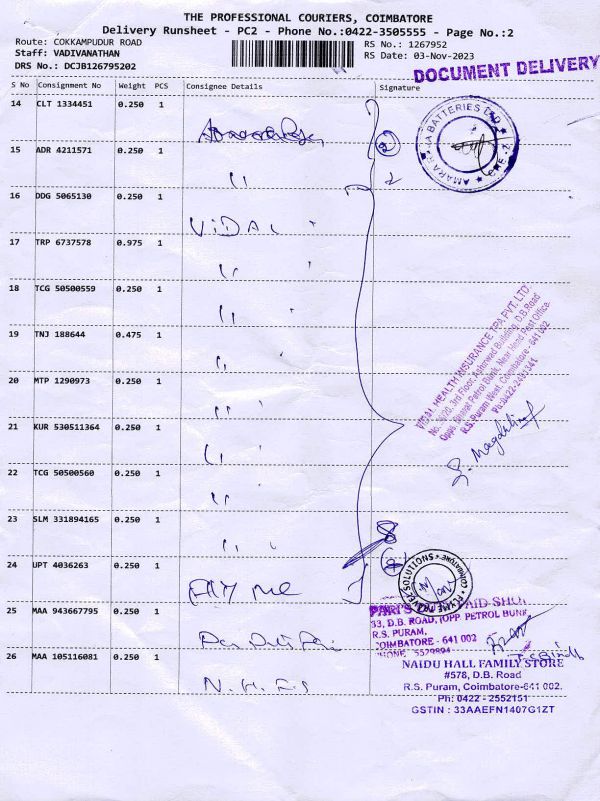 THE PROFESSIONAL COURIERS, COIMBATORE
Delivery Runsheet - PC2 - Phone No.:0422-3505555 - Page No.:2
Route: COKKAMPUDUR ROAD
RS No.: 1267952
Staff: VADIVANATHAN
RS Date: 03-Nov-2023
DRS No.: DCJB126795202
DOCUMENT DELIVERY
S No Consignment No Weight PCS Consignee Details Signature
14 CLT 1334451 0.250 1
AMARA RAJA BATTERIES LTD CBE
15 ADR 4211571 0.250 1 "
2
16 DDG 5065130 0.250 1 ViDAL
17 TRP 6737578 0.975 1 "
18 TCG 50500559 0.250 1 "
19 TNJ 188644 0.475 1 "
20 MTP 1290973 0.250 1 "
21 KUR 530511364 0.250 1 "
22 TCG 50500560 0.250 1 "
23 SLM 331894165 0.250 1 "
VIDAL HEALTH INSURANCE TPA PVT. LTD.
3rd Floor, Building, D.B.Road
Opp. Bharat Petrol Bunk, Near Head Post Office
R.S.Puram West, Coimbatore - 641 002
24 UPT 4036263 0.250 1
FLYME TRAVEL SOLUTIONS COIMBATORE
25 MAA 943667795 0.250 1
33, D.B. ROAD, (OPP PETROL BUNK,
R.S. PURAM,
COIMBATORE - 641 002
26 MAA 105116081 0.250 1 N.H.F.S
NAIDU HALL FAMILY STORE
#578, D.B. Road
R.S. Puram, Coimbatore-641 002.
Ph: 0422 - 2552151
GSTIN : 33AAEFN1407G1ZT